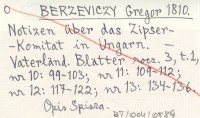 O BERZEVICZY Gregor 1810.
Notizen über das Zipser-
-Komitat in Ungarn. -
Vaterländ. Blätter rocz. 3, t.1,
nr 10: 99-103; nr 11: 109-112;
nr 12: 117-122; nr 13: 134-136.
Opis Spisza.